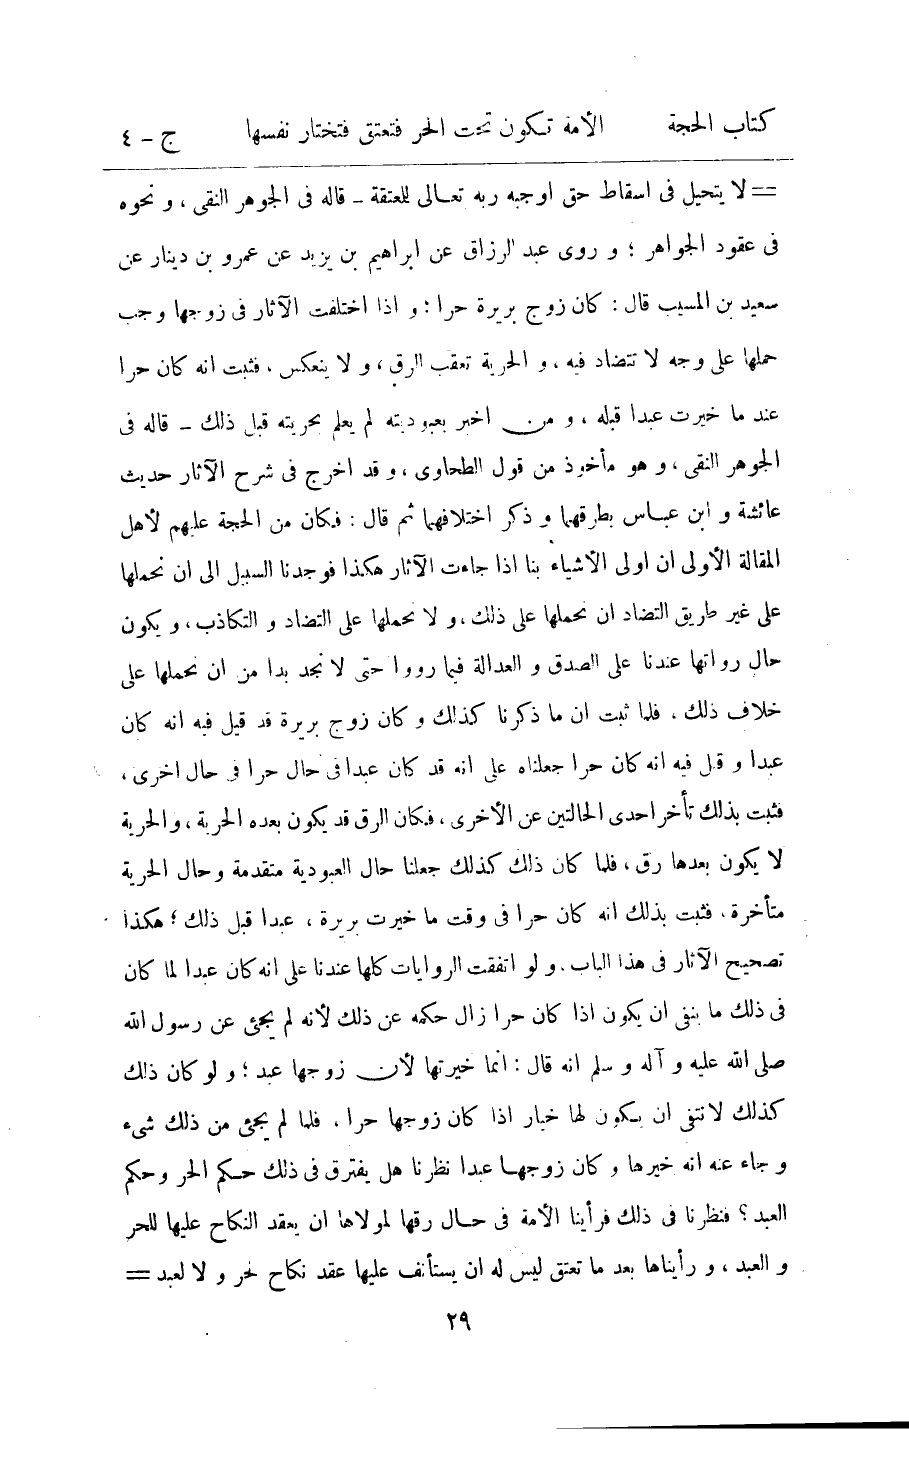 كتاب الحجة الأمة تكون تحت الحر فتعتق فتختار نفسها ج – ٤
== لا يتحيل فى اسقاط حق اوجبه ربه تعالى للعتقة – قاله فى الجوهر النقى ، و نحوه
فى عقود الجواهر ؛ و روى عبد الرزاق عن ابراهيم بن يزيد عن عمرو بن دينار عن
سعيد بن المسيب قال : كان زوج بريرة حرا ؛ و اذا اختلفت الآثار فى زوجها وجب
حملها على وجه لا تتضاد فيه ، و الحرية تعقب الرق ، و لا ينعكس ، فثبت انه كان حرا
عند ما خيرت عبدا قبله ، و من اخبر بعبوديته لم يعلم بحريته قبل ذلك – قاله فى
الجوهر النقى ، و هو مأخوذ من قول الطحاوى ، و قد اخرج فى شرح الآثار حديث
عائشة و ابن عباس بطرقهما و ذكر اختلافهما ثم قال : فكان من الحجة عليهم لأهل
المقالة الأولى ان اولى الأشياء بنا اذا جاءت الآثار هكذا فوجدنا السبيل الى ان نحملها
على غير طريق التضاد ان نحملها على ذلك ، و لا نحملها على التضاد و التكاذب ، و يكون
حال رواتها عندنا على الصدق و العدالة فيما رووا حتى لا نجد بدا من ان نحملها على
خلاف ذلك ، فلما ثبت ان ما ذكرنا كذلك و كان زوج بريرة قد قيل فيه انه كان
عبدا و قيل فيه انه كان حرا جعلناه على انه قد كان عبدا فى حال حرا فى حال اخرى ،
فثبت بذلك تأخر احدى الحالتين عن الأخرى ، فكان الرق قد يكون بعده الحرية ، والحرية
لا يكون بعدها رق ، فلما كان ذلك كذلك جعلنا حال العبودية متقدمة وحال الحرية
متأخرة ، فثبت بذلك انه كان حرا فى وقت ما خيرت بريرة ، عبدا قبل ذلك ؛ هكذا
تصحيح الآثار فى هذا الباب ، و لو اتفقت الروايات كلها عندنا على انه كان عبدا لما كان
فى ذلك ما ينفى ان يكون اذا كان حرا زال حكمه عن ذلك لأنه لم يجئ عن رسول الله
صلى الله عليه و آله و سلم انه قال : انما خيرتها لأن زوجها عبد ؛ و لو كان ذلك
كذلك لانتفى ان يكون لها خيار اذا كان زوجها حرا ، فلما لم يجئ من ذلك شىء
و جاء عنه انه خيرها و كان زوجها عبدا نظرنا هل يفترق فى ذلك حكم الحر وحكم
العبد ؟ فنظرنا فى ذلك فرأينا الأمة فى حال رقها لمولاها ان يعقد النكاح عليها للحر
و العبد ، و رأيناها بعد ما تعتق ليس له ان يستأنف عليها عقد نكاح لحر و لا لعبد ==
٢٩